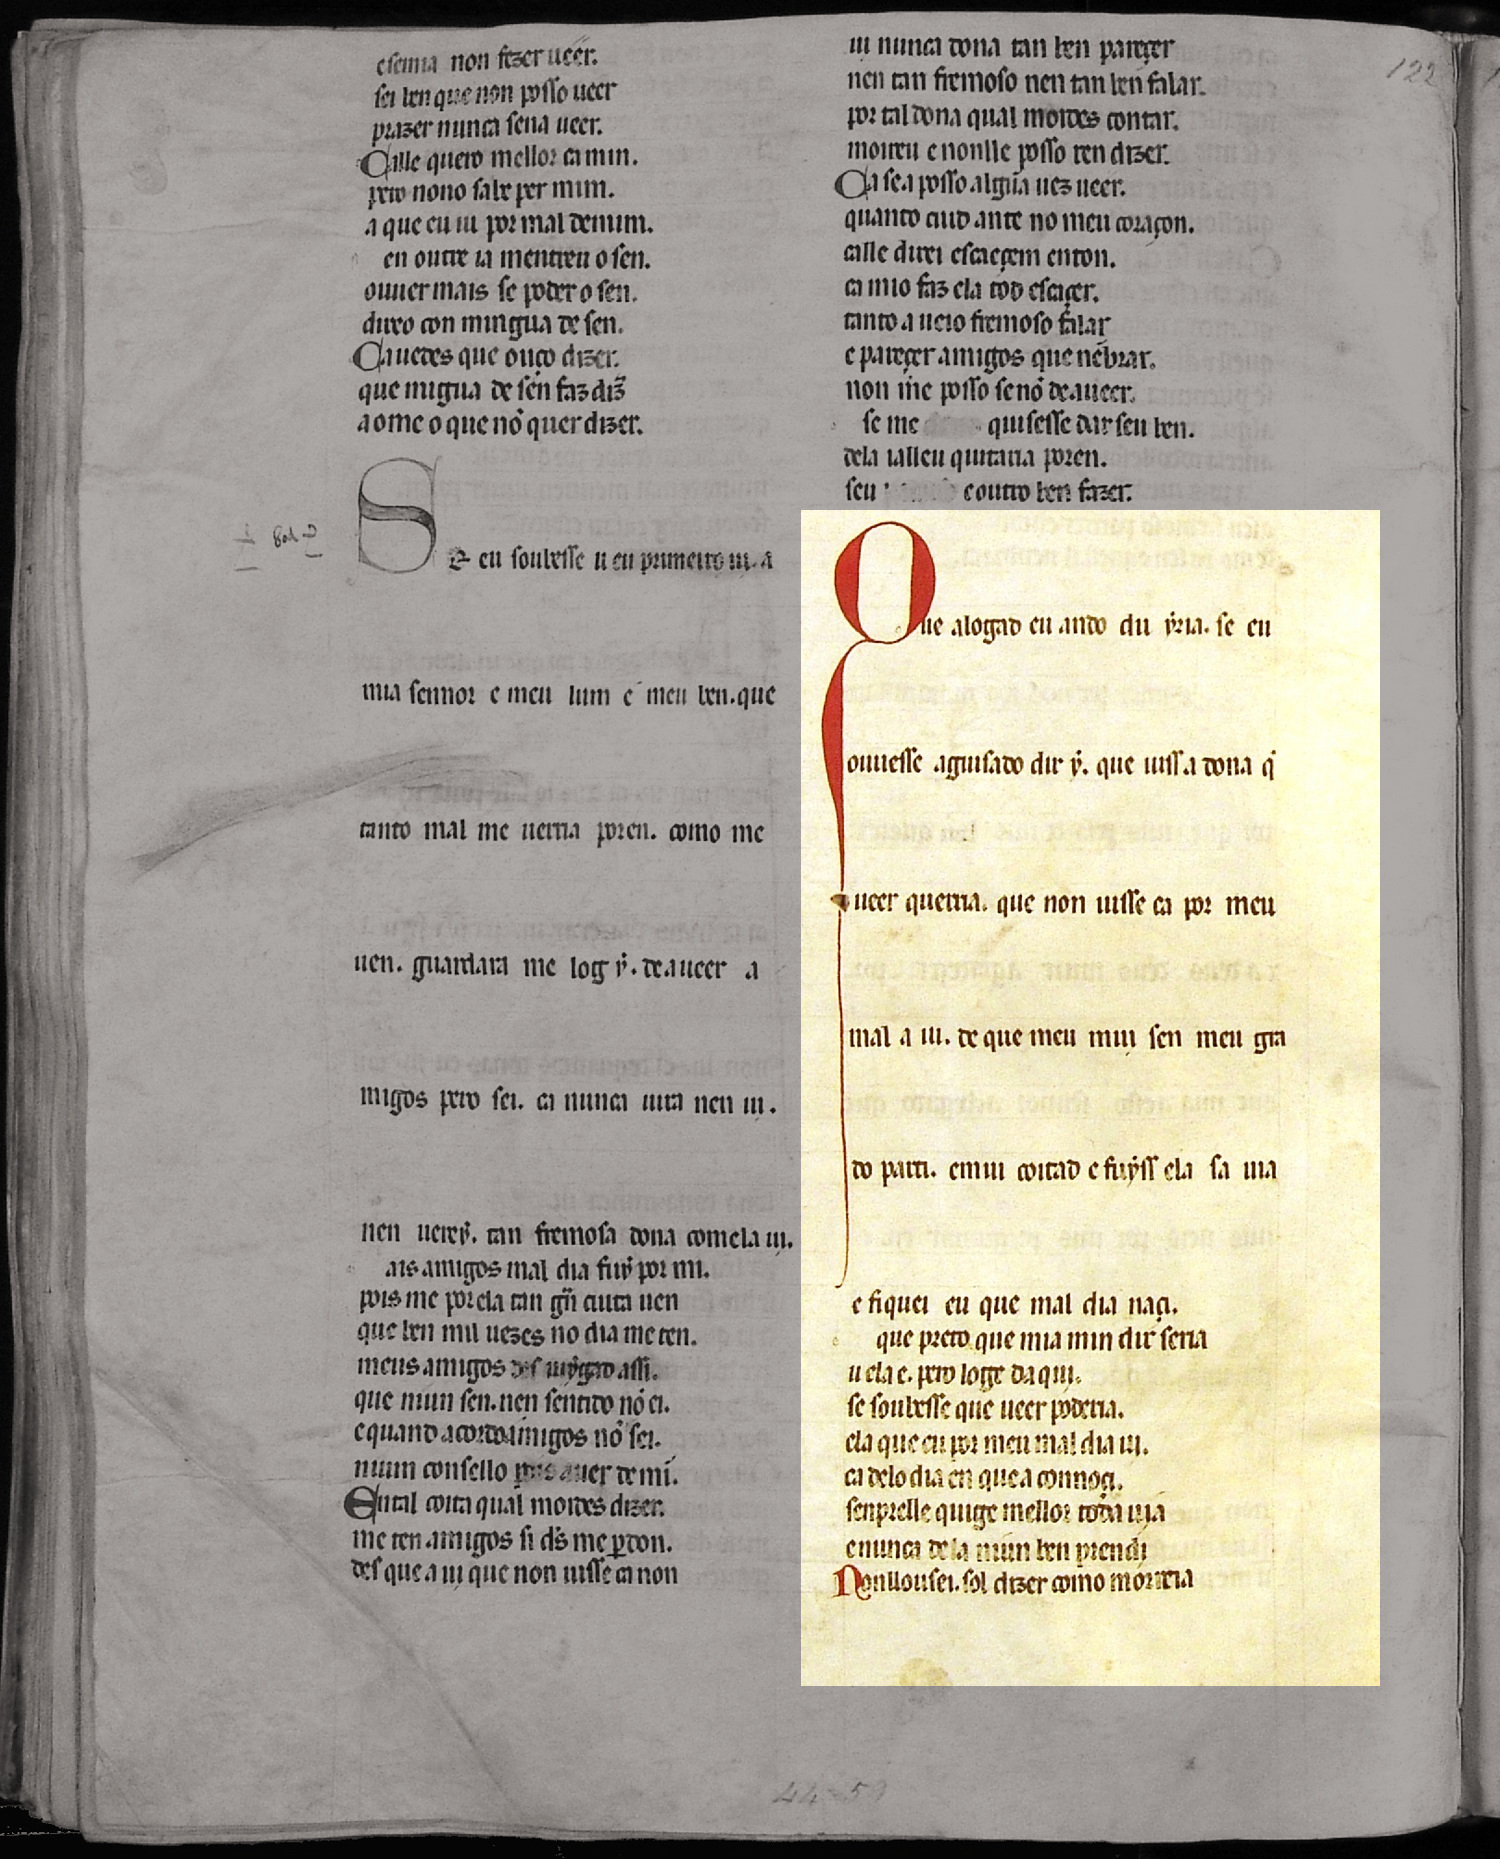 esenna non fezer ueer.
sei ben que non posso ueer
prazer nunca sena ueer.
Calle quero mellor ca min.
pero nono sabe per mim.
a que eu ui por mal de mim.
en outre ia mentreu o sen.
ouuer mais se poder o sen.
duro con mingua de sen.
Cauedes que ouço dizer.
que migua de sen faz diz̄
a ome o que nō quer dizer.
Se eu soubesse u eu primeiro ui. a
mia sennor e meu lum e meu ben. que
tanto mal me uerria poren. como me
uen. guardara me log ẏ. de a ueer a
migos pero sei. ca nunca uira nen ui.
nen uerey. tan fremosa dona comela ui.
ais amigos mal dia fuy por mi.
pois me por ela tan gn̄ cuita uen
que ben mil uezes no dia me ten.
meus amigos des uygrado assi.
que niun sen. nen sentido nō ei.
e quand acordo amigos nō sei.
niun consello pois auer de mī.
En tal coita qual moides dizer.
me ten amigos si d̄s me ꝑdon.
des que a ui que non uisse ca non
ui nunca dona tan ben pareçer
nen tan fremoso nen tan ben falar.
por tal dona qual moides contar.
moireu e nonlle posso ren dizer.
Ca se a posso algūa uez ueer.
quanto cuid ante no meu coraçon.
calle direi escaeçem enton.
ca mio faz ela tod escaeçer.
tanto a ueio fremoso falar
e pareçer amigos que nēbrar.
non me posso senō de a ueer.
se me quisesse dar seu ben.
dela ialleu quitaria poren.
seu e outro ben fazer.
Que alogad eu ando du yria. se eu
ouuesse aguisado dir ẏ. que uissa dona q̄
ueer querria. que non uisse ca por meu
mal a ui. de que meu mui sen meu gra
do parti. e mui coitad e fuyss ela sa uia
e fiquei eu que mal dia naçi.
que preto que mia min dir seria
u ela e. pero loge daqui.
se soubesse que ueer poderia.
ela que eu por meu mal dia ui.
ca delo dia en que a connoçi.
senprelle quige mellor toda uia
e nunca dela niun ben prendi
Nonllousei. sol dizer como morreria
122
44-59